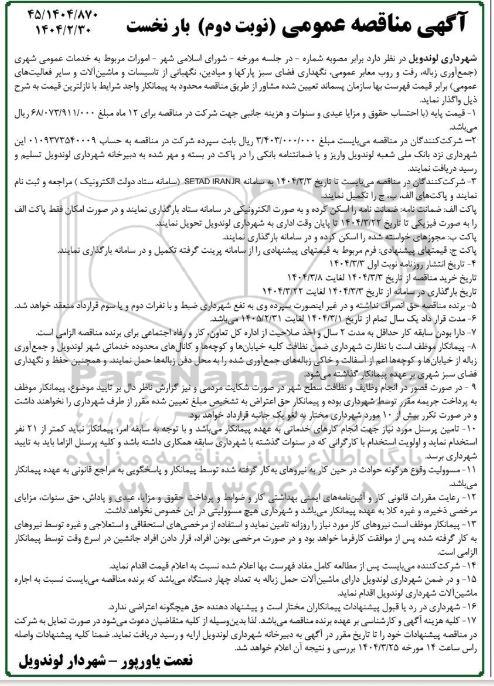 آگهی مناقصه عمومی (نوبت دوم) بار نخست
۴۵/۱۴۰۴/۸۷۰
۱۴۰۴/۲/۳۰
شهرداری لوندویل در نظر دارد برابر مصوبه شماره - در جلسه مورخه - شورای اسلامی شهر - امورات مربوط به خدمات عمومی شهری
(جمع‌آوری زباله، رفت و روب معابر عمومی، نگهداری فضای سبز پارکها و میادین، نگهبانی از تاسیسات و ماشین‌آلات و سایر فعالیت‌های
عمومی) برابر قیمت فهرست بها سازمان پسماند تعیین شده مشاور از طریق مناقصه محدود به پیمانکار واجد شرایط با نازلترین قیمت به شرح
ذیل واگذار نماید.
۱- قیمت پایه (با احتساب حقوق و مزایا عیدی و سنوات و هزینه جانبی جهت شرکت در مناقصه برای ۱۲ ماه مبلغ ۶۸/۰۷۳/۹۱۱/۰۰۰ ریال
می‌باشد.
۲- شرکت‌کنندگان در مناقصه می‌بایست مبلغ ۳/۴۰۳/۰۰۰/۰۰۰ ریال بابت سپرده شرکت در مناقصه به حساب ۰۱۰۹۳۷۳۵۴۰۰۰۹ این
شهرداری نزد بانک ملی شعبه لوندویل واریز و یا ضمانتنامه بانکی را در پاکت در بسته و مهر شده به دبیرخانه شهرداری لوندویل تسلیم و
رسید دریافت نمایند.
۳- شرکت‌کنندگان در مناقصه می‌بایست تا تاریخ ۱۴۰۴/۳/۳ به سامانه SETAD IRAN.IR (سامانه ستاد دولت الکترونیک) مراجعه و ثبت نام
نمایند و پاکت‌های الف، ب، ج را تکمیل نمایند.
پاکت الف: ضمانت نامه: ضمانت نامه را اسکن کرده و به صورت الکترونیکی در سامانه ستاد بارگذاری نمایند و در صورت امکان فقط پاکت الف
را به صورت فیزیکی تا تاریخ ۱۴۰۴/۳/۲۲ تا پایان وقت اداری به شهرداری لوندویل تحویل نمایند.
پاکت ب: مجوزهای خواسته شده را اسکن کرده و در سامانه بارگذاری نمایند.
پاکت ج: قیمتهای پیشنهادی: فرم مربوط به قیمتهای پیشنهادی را از سامانه پرینت گرفته تکمیل و در سامانه بارگذاری نمایند.
۴- تاریخ انتشار روزنامه نوبت اول ۱۴۰۴/۳/۳
تاریخ خرید مناقصه از تاریخ ۱۴۰۴/۳/۳ لغایت ۱۴۰۴/۳/۸
تاریخ بارگذاری در سامانه از تاریخ ۱۴۰۴/۳/۳ لغایت ۱۴۰۴/۳/۲۲
۵- برنده مناقصه حق انصراف نداشته و در غیر اینصورت سپرده وی به نفع شهرداری ضبط و با نفرات دوم و یا سوم قرارداد منعقد خواهد شد.
۶- مدت قرار داد یک سال تمام از تاریخ ۱۴۰۴/۳/۱ لغایت ۱۴۰۵/۲/۳۱ می‌باشد.
۷- دارا بودن سابقه کار حداقل به مدت ۲ سال و اخذ صلاحیت از اداره کل تعاون، کار و رفاه اجتماعی برای برنده مناقصه الزامی است.
۸- پیمانکار موظف است با نظارت شهرداری ضمن نظافت کلیه خیابان‌ها و کوچه‌ها و کانال‌های محدوده خدماتی شهر لوندویل و جمع‌آوری
زباله از خیابان‌ها و کوچه‌ها اعم از آسفالت و خاکی زباله‌های جمع‌آوری شده را به محل دفن زباله‌ها حمل نمایند. و همچنین حفظ و نگهداری
فضای سبز شهری بر عهده پیمانکار گذاشته می‌شود.
۹- در صورت قصور در انجام وظایف و نظافت سطح شهر در صورت شکایت مردمی و نیز گزارش ناظر دال بر تایید موضوع، پیمانکار موظف
به پرداخت جریمه مقرر توسط شهرداری بوده و پیمانکار حق اعتراض به تشخیص مبلغ تعیین شده مقرر از طرف شهرداری را نخواهند داشت
و در صورت تکرر بیش از ۱۰ مورد شهرداری مختار به لغو یک جانبه قرارداد خواهد بود.
۱۰- تامین پرسنل مورد نیاز جهت انجام کارهای خدماتی به عهده پیمانکار می‌باشد و با توجه به سابقه امر، پیمانکار نباید کمتر از ۲۱ نفر
استخدام نماید و اولویت استخدام با کارگرانی که در سنوات گذشته با شهرداری سابقه همکاری داشته باشد و کلیه پرسنل الزاما باید به تایید
شهرداری برسد.
۱۱- مسوولیت وقوع هرگونه حوادث در حین کار به نیروهای به‌کار گرفته شده توسط پیمانکار و پاسخگویی به مراجع قانونی به عهده پیمانکار
می‌باشد.
۱۲- رعایت مقررات قانونی کار و آئین‌نامه‌های ایمنی بهداشتی کار و ضوابط و پرداخت حقوق و مزایا، عیدی و پاداش، حق سنوات، مزایای
مرخصی ذخیره، و غیره کلا به عهده پیمانکار می‌باشد و شهرداری هیچ مسوولیتی در این خصوص نخواهد داشت.
۱۳- پیمانکار موظف است نیروهای کار مورد نیاز را روزانه تامین نماید و استفاده از مرخصی‌های استحقاقی و استعلاجی و غیره توسط نیروهای
به کار گرفته شده پس از موافقت کارفرما خواهد بود و در صورت مرخصی بودن افراد، قرار دادن افراد جانشین در اسرع وقت توسط پیمانکار
الزامی است.
۱۴- شرکت‌کننده می‌بایست پس از مطالعه کامل مفاد فهرست بها اعلام شده نسبت به اعلام قیمت اقدام نماید.
۱۵- و در ضمن شهرداری لوندویل دارای ماشین‌آلات حمل زباله به تعداد چهار دستگاه می‌باشد که برنده مناقصه می‌بایست نسبت به اجاره
ماشین‌آلات شهرداری لوندویل اقدام نماید.
۱۶- شهرداری در رد یا قبول پیشنهادات پیمانکاران مختار است و پیشنهاد دهنده حق هیچگونه اعتراضی ندارد.
۱۷- کلیه هزینه آگهی و کارشناسی بر عهده برنده مناقصه می‌باشد. لذا بدین‌وسیله از کلیه متقاضیان دعوت می‌شود در صورت تمایل به شرکت
در مناقصه پیشنهادات خود را تا تاریخ مقرر در آگهی به دبیرخانه شهرداری لوندویل ارایه و رسید دریافت نماید. ضمنا کلیه پیشنهادات واصله
راس ساعت ۱۴ مورخه ۱۴۰۴/۳/۲۵ بررسی و نتیجه آن اعلام خواهد شد.
نعمت یاورپور - شهردار لوندویل